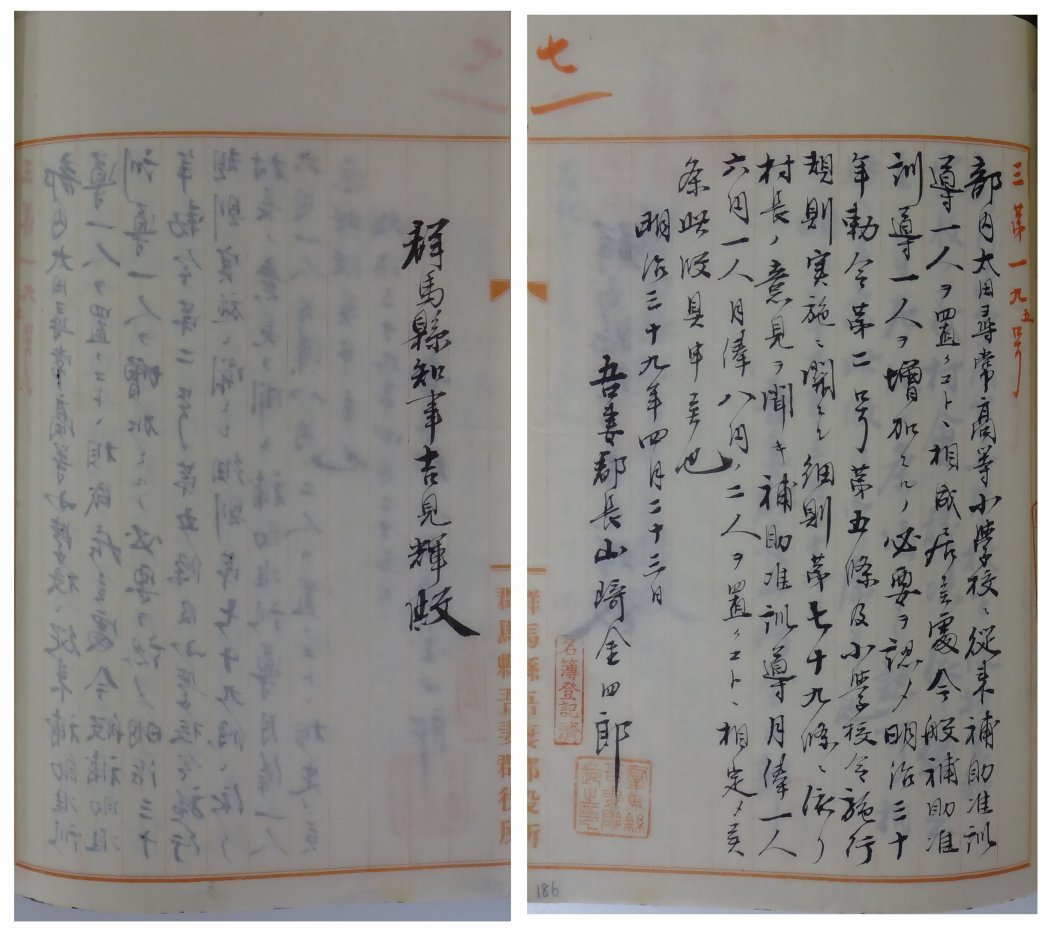 七
三第一九五号
部内太田尋常高等小学校ニ従来補助准訓
導一人ヲ置クコトニ相成居候処今般補助准
訓導一人ヲ増加スルノ必要ヲ認メ明治三十
年勅令第二号第五條及小学校令施行
規則実施ニ関スル細則第七十九條ニ依リ
村長ノ意見ヲ聞キ補助准訓導月俸一人
六円一人月俸八円ノ二人ヲ置クコトニ相定メ候
条此段具申候也
明治三十九年四月二十三日
吾妻郡長山崎金四郎
名簿登記済
群馬縣吾妻郡長之印
186
群馬縣知事吉見輝殿
群馬縣吾妻郡役所